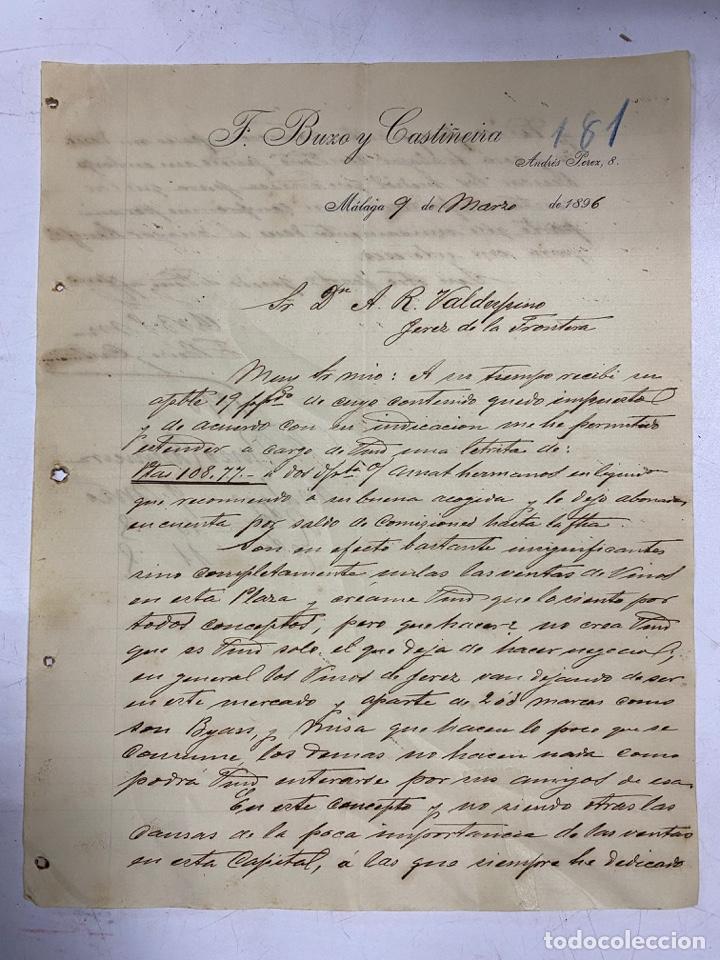 F. Buzo y Castiñeira
181
Andrés Perez, 8.
Málaga 9 de Marzo de 1896
Sr Dn A. R. Valdespino
Jerez de la Frontera
Muy Sr mio: A su tiempo recibi su
apble 19 ppdo de cuyo contenido quedo impuesto
y de acuerdo con su indicacion me he permitido
estender a cargo de Vmd una letrita de:
Ptas 108.77.- á dos d/ Arnat hermanos en liquido
que recomiendo a su buena acogida y le dejo abonada
en cuenta por saldo de Comisiones hasta la fha.
Son en efecto bastante insignificantes
sino completamente nulas las ventas de Vinos
en esta Plaza y creame Vmd que lo siento por
todos conceptos, pero que hacer? no crea Vmd
que es Vmd solo el que deja de hacer negocio;
en general los Vinos de Jerez van dejando de ser
en este mercado y aparte de 2 ó 3 marcas como
son Byass, y Misa que hacen lo poco que se
consume, los demas no hacen nada como
podrá Vmd enterarse por sus amigos de esa.
En este concepto y no siendo otras las
causas de la poca importancia de las ventas
en esta Capital, á las que siempre he dedicado
todocoleccion
todocoleccion.net